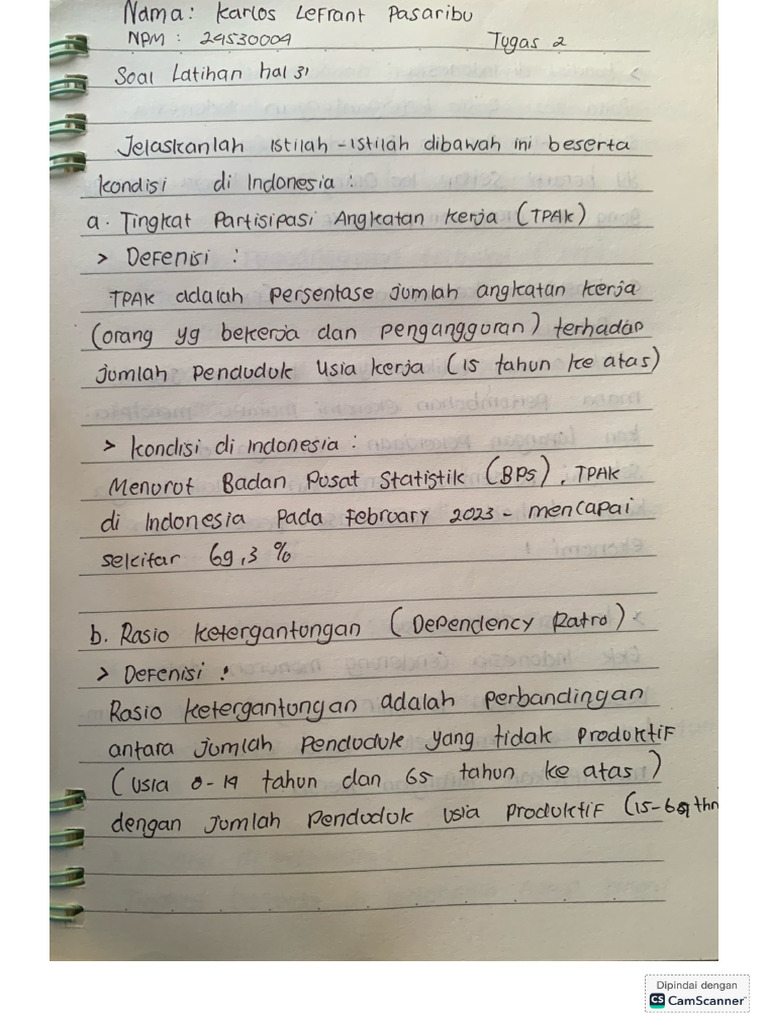 Nama: Karlos Lefrant Pasaribu
NPM : 24530004 Tugas 2
Soal Latihan hal 31
Jelaskanlah istilah-istilah dibawah ini beserta
kondisi di Indonesia :
a. Tingkat Partisipasi Angkatan Kerja (TPAK)
> Defenisi :
TPAK adalah persentase jumlah angkatan kerja
(orang yg bekerja dan pengangguran) terhadap
jumlah Penduduk Usia kerja (15 tahun ke atas)
> Kondisi di Indonesia :
Menurut Badan Pusat Statistik (BPS), TPAK
di Indonesia Pada february 2023 - mencapai
sekitar 69,3 %
b. Rasio Ketergantungan (Dependency Ratro).
> Defenisi :
Rasio ketergantungan adalah perbandingan
antara jumlah Penduduk yang tidak Produktif
(usia 0-14 tahun dan 65 tahun ke atas)
dengan jumlah Penduduk usia Produktif (15-64 thn
Dipindai dengan
CS CamScanner